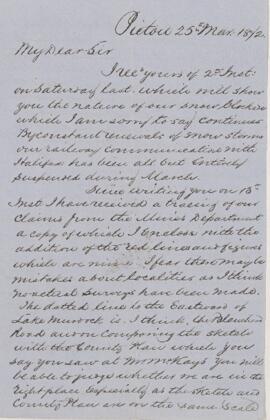 Pictou 25th Mar. 1872
My Dear Sir
I recd yours of 2d Inst:
on Saturday last which will show
you the nature of our snow blockade
which I am sorry to say continues
By constant renewals of snow storms
our railway communication with
Halifax has been all but Entirely
suspended during March.
Since writing you on 13th
Inst I have received a tracing of our
Claims from the Mines Department
a copy of which I Enclose with the
addition of the red lines and figures
which are mine. I fear there may be
mistakes about localities as I think
no actual surveys have been made.
The dotted line to the Eastward of
Lake is I think, the
Road and on Comparing the sketch
with the County Plan which you
say you saw at Mr McKays you will
be able to judge whether we are in the
right place Especially as the sketch and
County Plan are on the same Scale